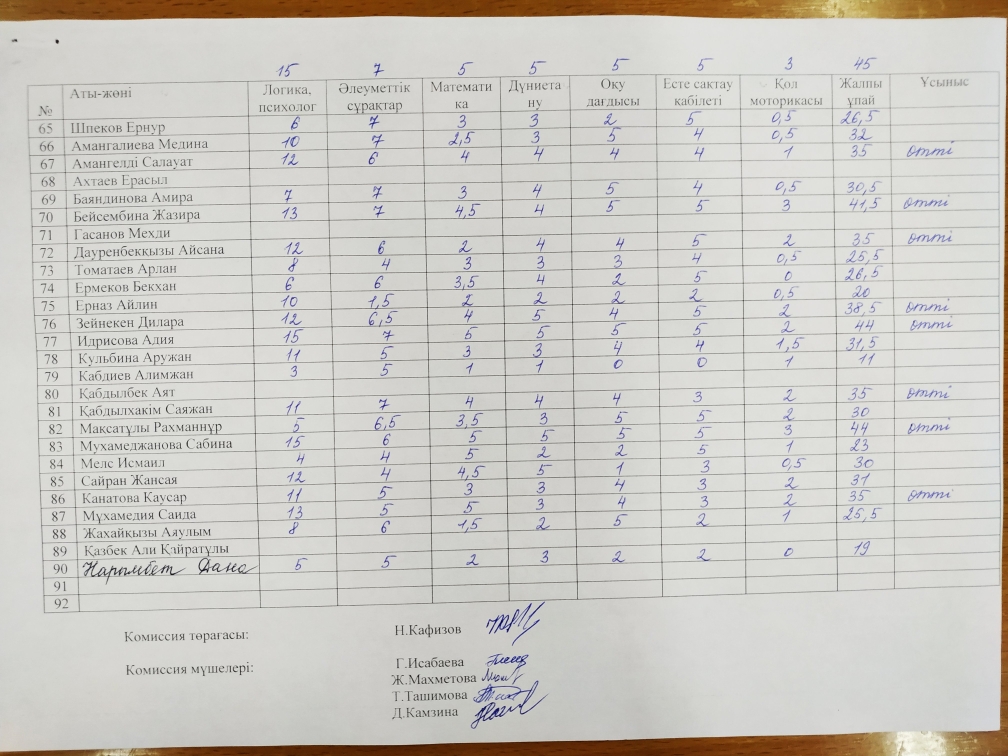 15 7 5 5 5 5 3 45
№ Аты-жөні Логика, психолог Әлеуметтік сұрақтар Математика Дүниетану Оқу дағдысы Есте сақтау қабілеті Қол моторикасы Жалпы ұпай Ұсыныс
65 Шпеков Ернур 6 7 3 3 2 5 0,5 26,5
66 Амангалиева Медина 10 7 2,5 3 5 4 0,5 32
67 Амангелді Салауат 12 6 4 4 4 4 1 35 өтті
68 Ахтаев Ерасыл
69 Баяндинова Амира 7 7 3 4 5 4 0,5 30,5
70 Бейсембина Жазира 13 7 4,5 4 5 5 3 41,5 өтті
71 Гасанов Мехди
72 Дауренбекқызы Айсана 12 6 2 4 4 5 2 35 өтті
73 Томатаев Арлан 8 4 3 3 3 4 0,5 25,5
74 Ермеков Бекхан 6 6 3,5 4 2 5 0 26,5
75 Ерназ Айлин 10 1,5 2 2 2 2 0,5 20
76 Зейнекен Дилара 12 6,5 4 5 4 5 2 38,5 өтті
77 Идрисова Адия 15 7 5 5 5 5 2 44 өтті
78 Кульбина Аружан 11 5 3 3 4 4 1,5 31,5
79 Кабдиев Алимжан 3 5 1 1 0 0 1 11
80 Қабдылбек Аят
81 Қабдылхакім Саяжан 11 7 4 4 4 3 2 35 өтті
82 Мақсатұлы Рахманнұр 5 6,5 3,5 3 5 5 2 30
83 Мухамеджанова Сабина 15 6 5 5 5 5 3 44 өтті
84 Мелс Исмаил 4 4 5 2 2 5 1 23
85 Сайран Жансая 12 4 4,5 5 1 3 0,5 30
86 Канатова Каусар 11 5 3 3 4 3 2 31
87 Мұхамедия Саида 13 5 5 3 4 3 2 35 өтті
88 Жахайқызы Аяулым 8 6 1,5 2 5 2 1 25,5
89 Қазбек Али Қайратұлы
90 Нарымбет Дана 5 5 2 3 2 2 0 19
91
92
Комиссия төрағасы: Н.Кафизов
Комиссия мүшелері: Г.Исабаева
Ж.Махметова
Т.Ташимова
Д.Камзина